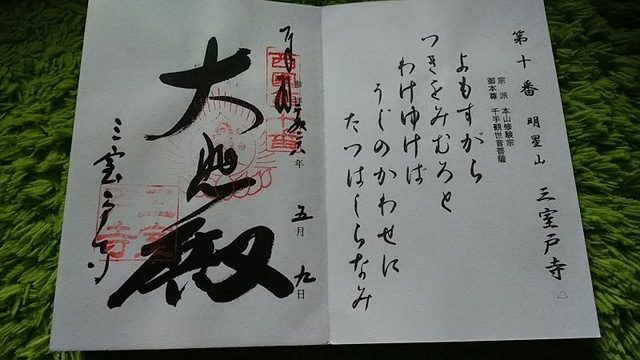 第十番 明星山 三室戸寺
宗派 本山修験宗
御本尊 千手観世音菩薩
よもすがら
つきをみむろと
わけゆけば
うじのかわせに
たつはしらなみ
西国十番
年 五月 九日
大悲殿
三室戸寺